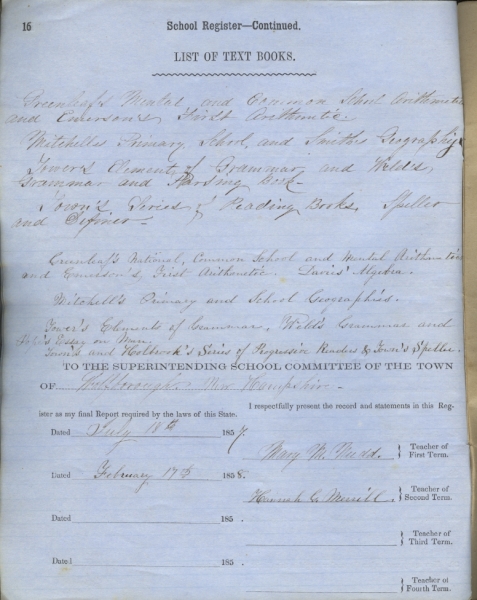 16
School Register—Continued.
LIST OF TEXT BOOKS.
Greenleaf's Mental and Common School Arithmetic
and Emerson's First Arithmetic
Mitchells Primary, School, and Smiths Geography
Tower's Element of Grammar and Weld's
Grammar and Parsing Book
Town's Series of Reading Books, Speller
and Definer
Greenleaf's National, Common School and Mental Arithmetic
and Emerson's, First Arithmetic. Davies' Algebra.
Mitchell's Primary and School Geographies.
Tower's Elements of Grammar, Weld's Grammar and
Essay on Man.
Town's and Holbrook's Series of Progressive Readers & Town's Speller.
TO THE SUPERINTENDING SCHOOL COMMITTEE OF THE TOWN
OF New Hampshire
I respectfully present the record and statements in this Reg-
ister as my final Report required by the laws of this State.
Dated July 18th 1857.
Mary M. Nudd. Teacher of First Term.
Dated February 17th 1858.
Hannah C. Merrill. Teacher of Second Term.
Dated 185 .
Teacher of Third Term.
Dated 185 .
Teacher of Fourth Term.